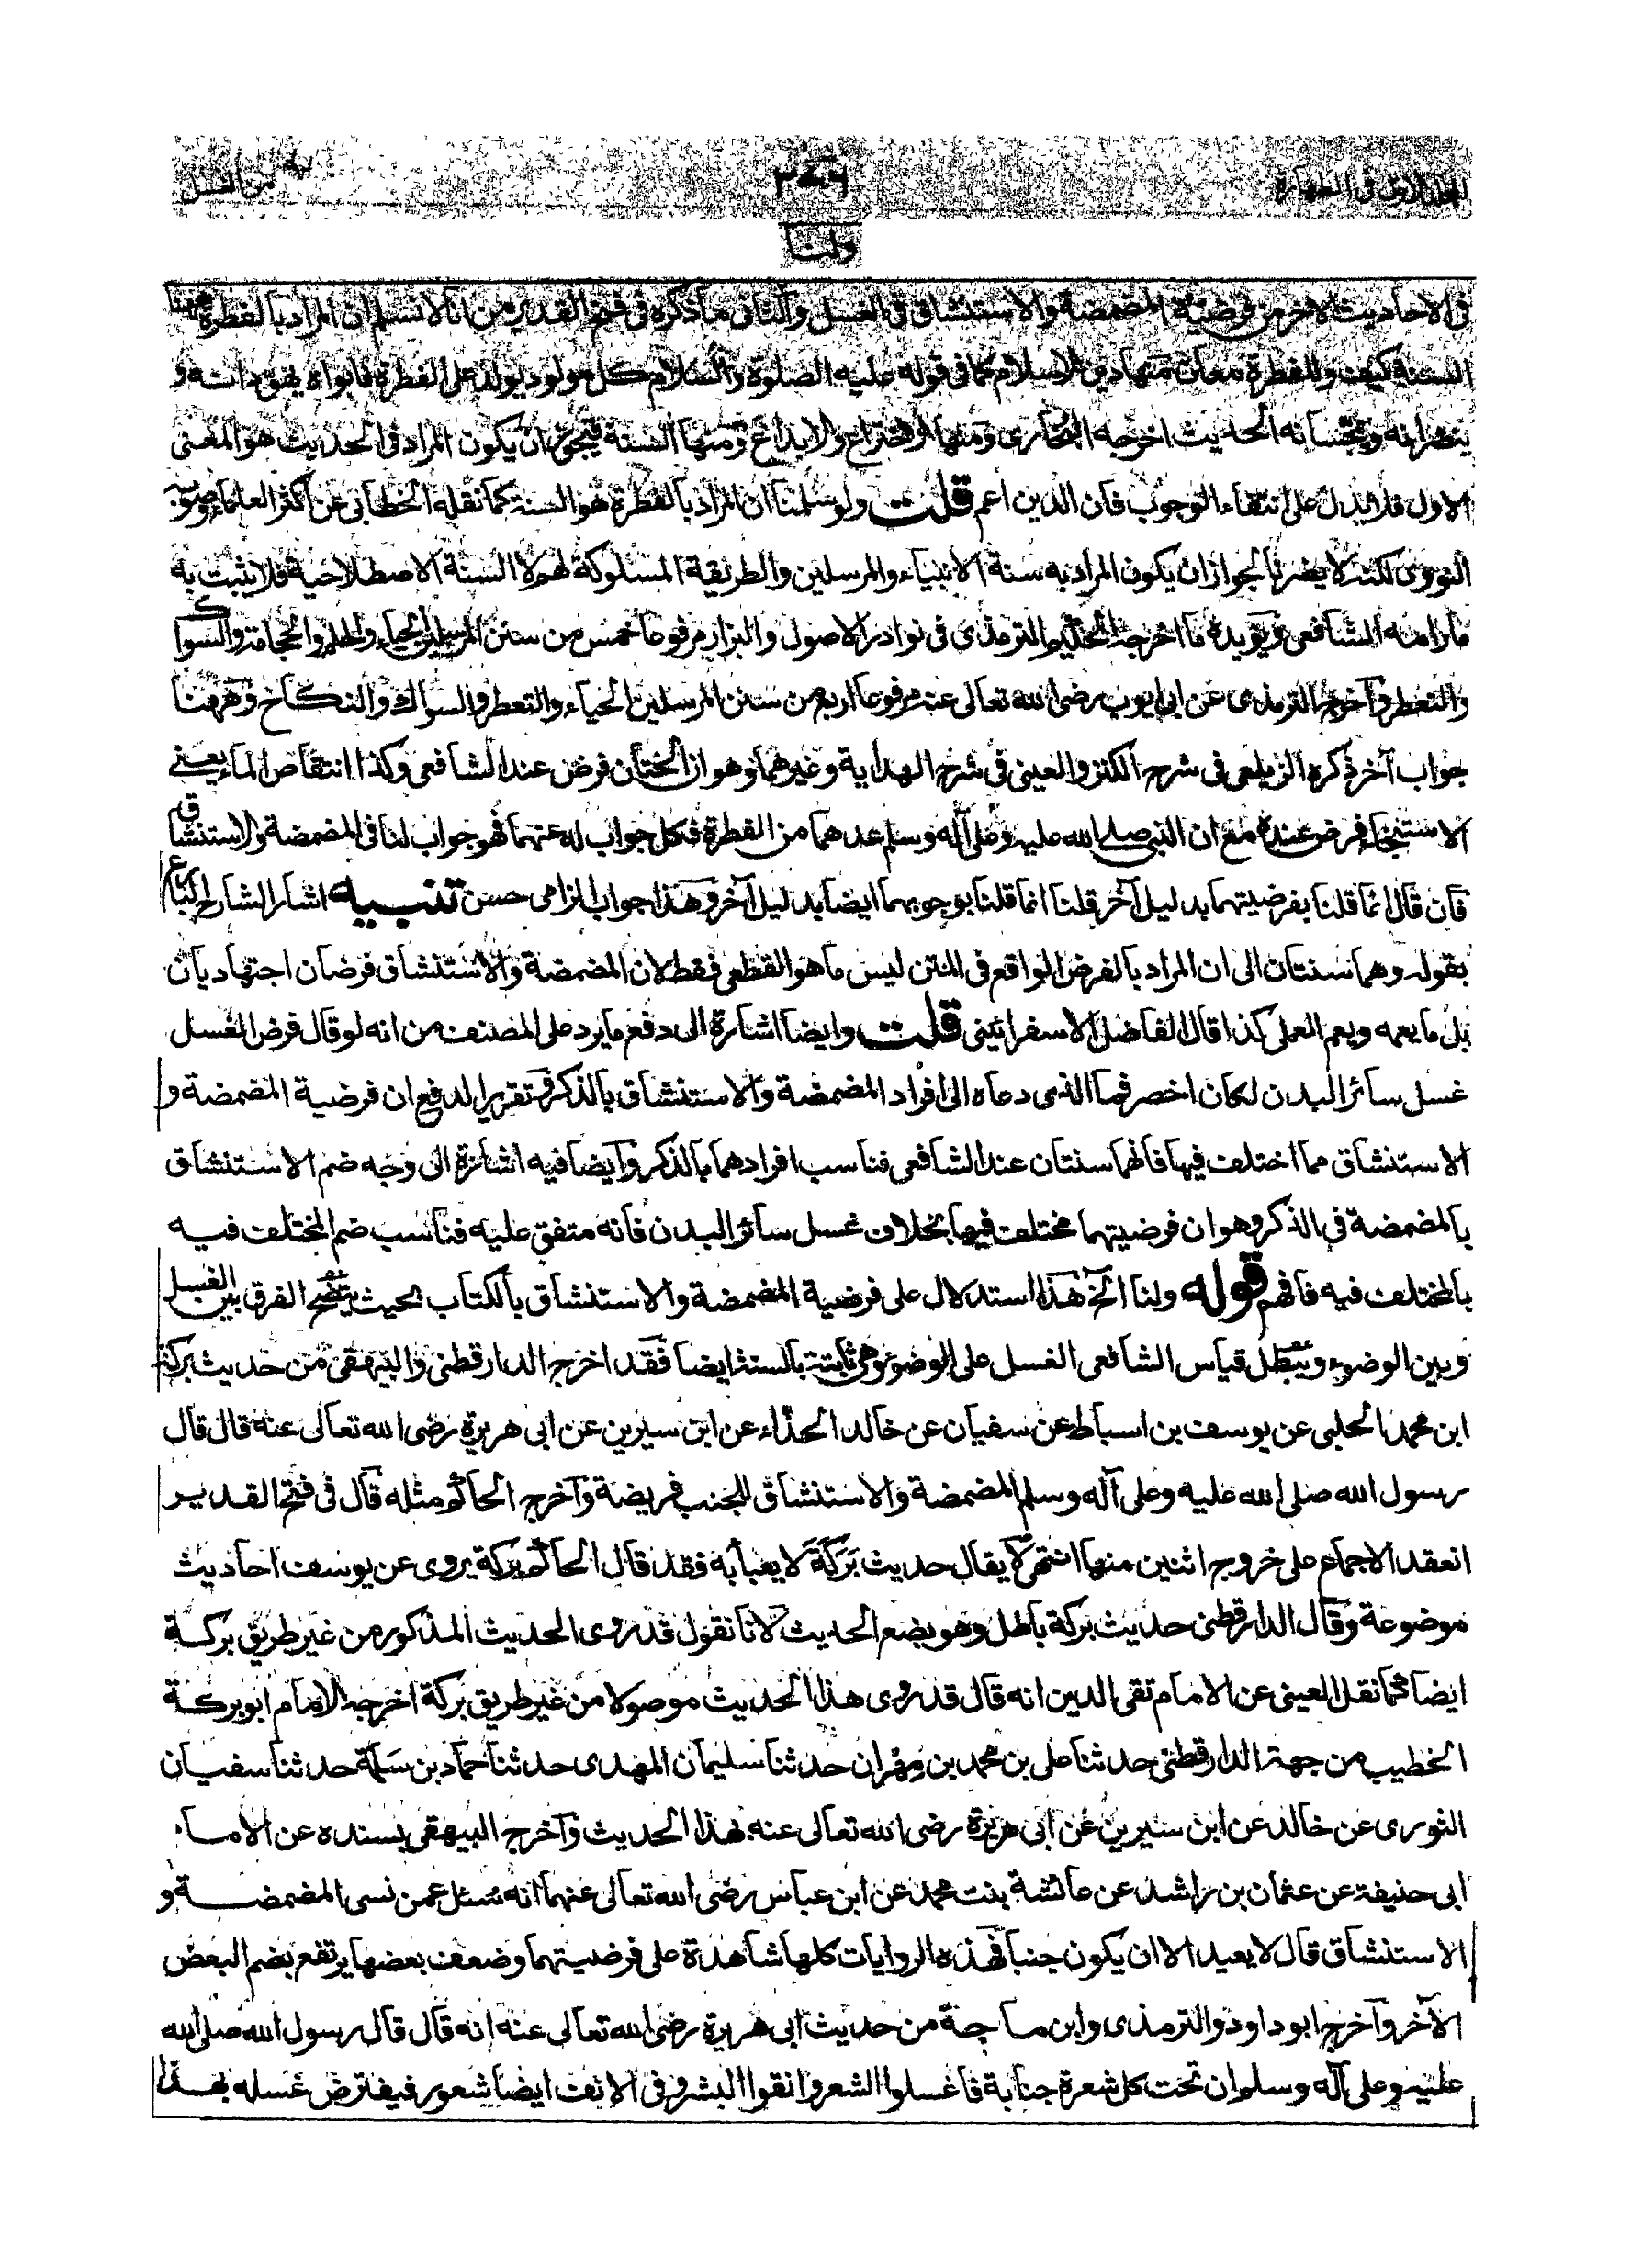 من الغسل
ولنا
فى الاحاديث الاخر من فرضية المضمضة والاستنشاق فى الغسل والثانى ما ذكره فى فتح القدير من انا لا نسلم ان المراد بالفطرة ههنا
السنة كيف وللفطرة معان منها دين الاسلام كما فى قوله عليه الصلوة والسلام كل مولود يولد على الفطرة فابواه يهودانه و
ينصرانه ويمجسانه الحديث اخرجه البخارى ومنها الاختراع والابداع ومنها السنة فيجوز ان يكون المراد فى الحديث هو المعنى
الاول فلا يدل على انتفاء الوجوب فان الدين اعم قلت ولو سلمنا ان المراد بالفطرة هو السنة كما نقله الخطابى عن اكثر العلماء وصوبه
النووى لكنه لا يضرنا لجواز ان يكون المراد به سنة الانبياء والمرسلين والطريقة المسلوكة لهم لا السنة الاصطلاحية فلا يثبت به
ما رامه الشافعى ويؤيده ما اخرجه الحكيم الترمذى فى نوادر الاصول والبزار مرفوعا خمس من سنن المرسلين الحياء والحلم والحجامة والسواك
والتعطر واخرج الترمذى عن ابى ايوب رضى الله تعالى عنه مرفوعا اربع من سنن المرسلين الحياء والتعطر والسواك والنكاح وههنا
جواب آخر ذكره الزيلعى فى شرح الكنز والعينى فى شرح الهداية وغيرهما وهو ان الختان فرض عند الشافعى وكذا انتقاص الماء يعنى
الاستنجاء فرض عنده مع ان النبى صلى الله عليه وعلى آله وسلم عدهما من الفطرة فكل جواب له عنهما فهو جواب لنا فى المضمضة والاستنشاق
فان قال انما قلنا بفرضيتهما بدليل آخر قلنا انما قلنا بوجوبهما ايضا بدليل آخر وهذا جواب الزامى حسن تنبيه اشار الشارح
بقوله وهما سنتان الى ان المراد بالفرض الواقع فى المتن ليس ما هو القطعى فقط لان المضمضة والاستنشاق فرضان اجتهاديان
بل ما يعمه ويعم العملى كذا قال الفاضل الاسفرائينى قلت وايضا اشارة الى دفع ما يرد على المصنف من انه لو قال فرض الغسل
غسل سائر البدن لكان اخصر فما الذى دعاه الى افراد المضمضة والاستنشاق بالذكر وتقرير الدفع ان فرضية المضمضة و
الاستنشاق مما اختلف فيها فانهما سنتان عند الشافعى فناسب افرادهما بالذكر وايضا فيه اشارة الى وجه ضم الاستنشاق
بالمضمضة فى الذكر وهو ان فرضيتهما مختلف فيها بخلاف غسل سائر البدن فانه متفق عليه فناسب ضم المختلف فيه
بالمختلف فيه فافهم قوله ولنا الخ هذا استدلال على فرضية المضمضة والاستنشاق بالكتاب بحيث يتضح الفرق بين الغسل
وبين الوضوء ويبطل قياس الشافعى الغسل على الوضوء وهى ثابتة بالسنة ايضا فقد اخرج الدارقطنى والبيهقى من حديث بركة
ابن محمد الحلبى عن يوسف بن اسباط عن سفيان عن خالد الحذاء عن ابن سيرين عن ابى هريرة رضى الله تعالى عنه قال قال
رسول الله صلى الله عليه وعلى آله وسلم المضمضة والاستنشاق للجنب فريضة وآخرج الحاكم مثله قال فى فتح القدير
انعقد الاجماع على خروج اثنين منها انتهى لا يقال حديث بركة لا يعبأ به فقد قال الحاكم بركة يروى عن يوسف احاديث
موضوعة وقال الدارقطنى حديث بركة باطل وهو يضع الحديث لانا نقول قد روى الحديث المذكور من غير طريق بركة
ايضا كما نقل العينى عن الامام تقى الدين انه قال قد روى هذا الحديث موصولا من غير طريق بركة اخرجه الامام ابو بركة
الخطيب من جهة الدارقطنى حدثنا على بن محمد بن مهران حدثنا سليمان المهدى حدثنا حماد بن سلمة حدثنا سفيان
الثورى عن خالد عن ابن سيرين عن ابى هريرة رضى الله تعالى عنه بهذا الحديث وآخرج البيهقى بسنده عن الامام
ابى حنيفة عن عثمان بن راشد عن عائشة بنت محمد عن ابن عباس رضى الله تعالى عنهما انه سئل عمن نسى المضمضة و
الاستنشاق قال لا يعيد الا ان يكون جنبا فهذه الروايات كلها شاهدة على فرضيتهما وضعف بعضها يرتفع بضم البعض
الآخر وآخرج ابو داود والترمذى وابن ماجة من حديث ابى هريرة رضى الله تعالى عنه انه قال قال رسول الله صلى الله
عليه وعلى آله وسلم ان تحت كل شعرة جنابة فاغسلوا الشعر وانقوا البشر وفى الانف ايضا شعور فيفترض غسله بهذا